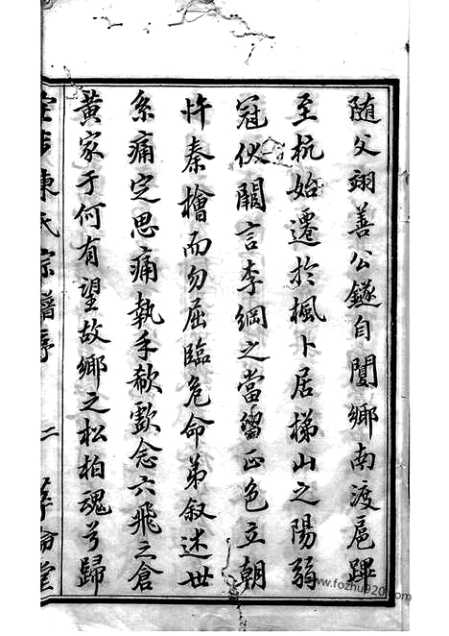 随父翊善公鐩自闅鄉南渡扈蹕
至杭始遷於楓卜居梯山之陽弱
冠伏闕言李綱之當留正色立朝
忤秦檜而勿屈臨危命弟叙述世
系痛定思痛執手欷歔念六飛之倉
黄家于何有望故鄉之松柏魂兮歸
陳氏宗譜序 二
www.fozhu920.com